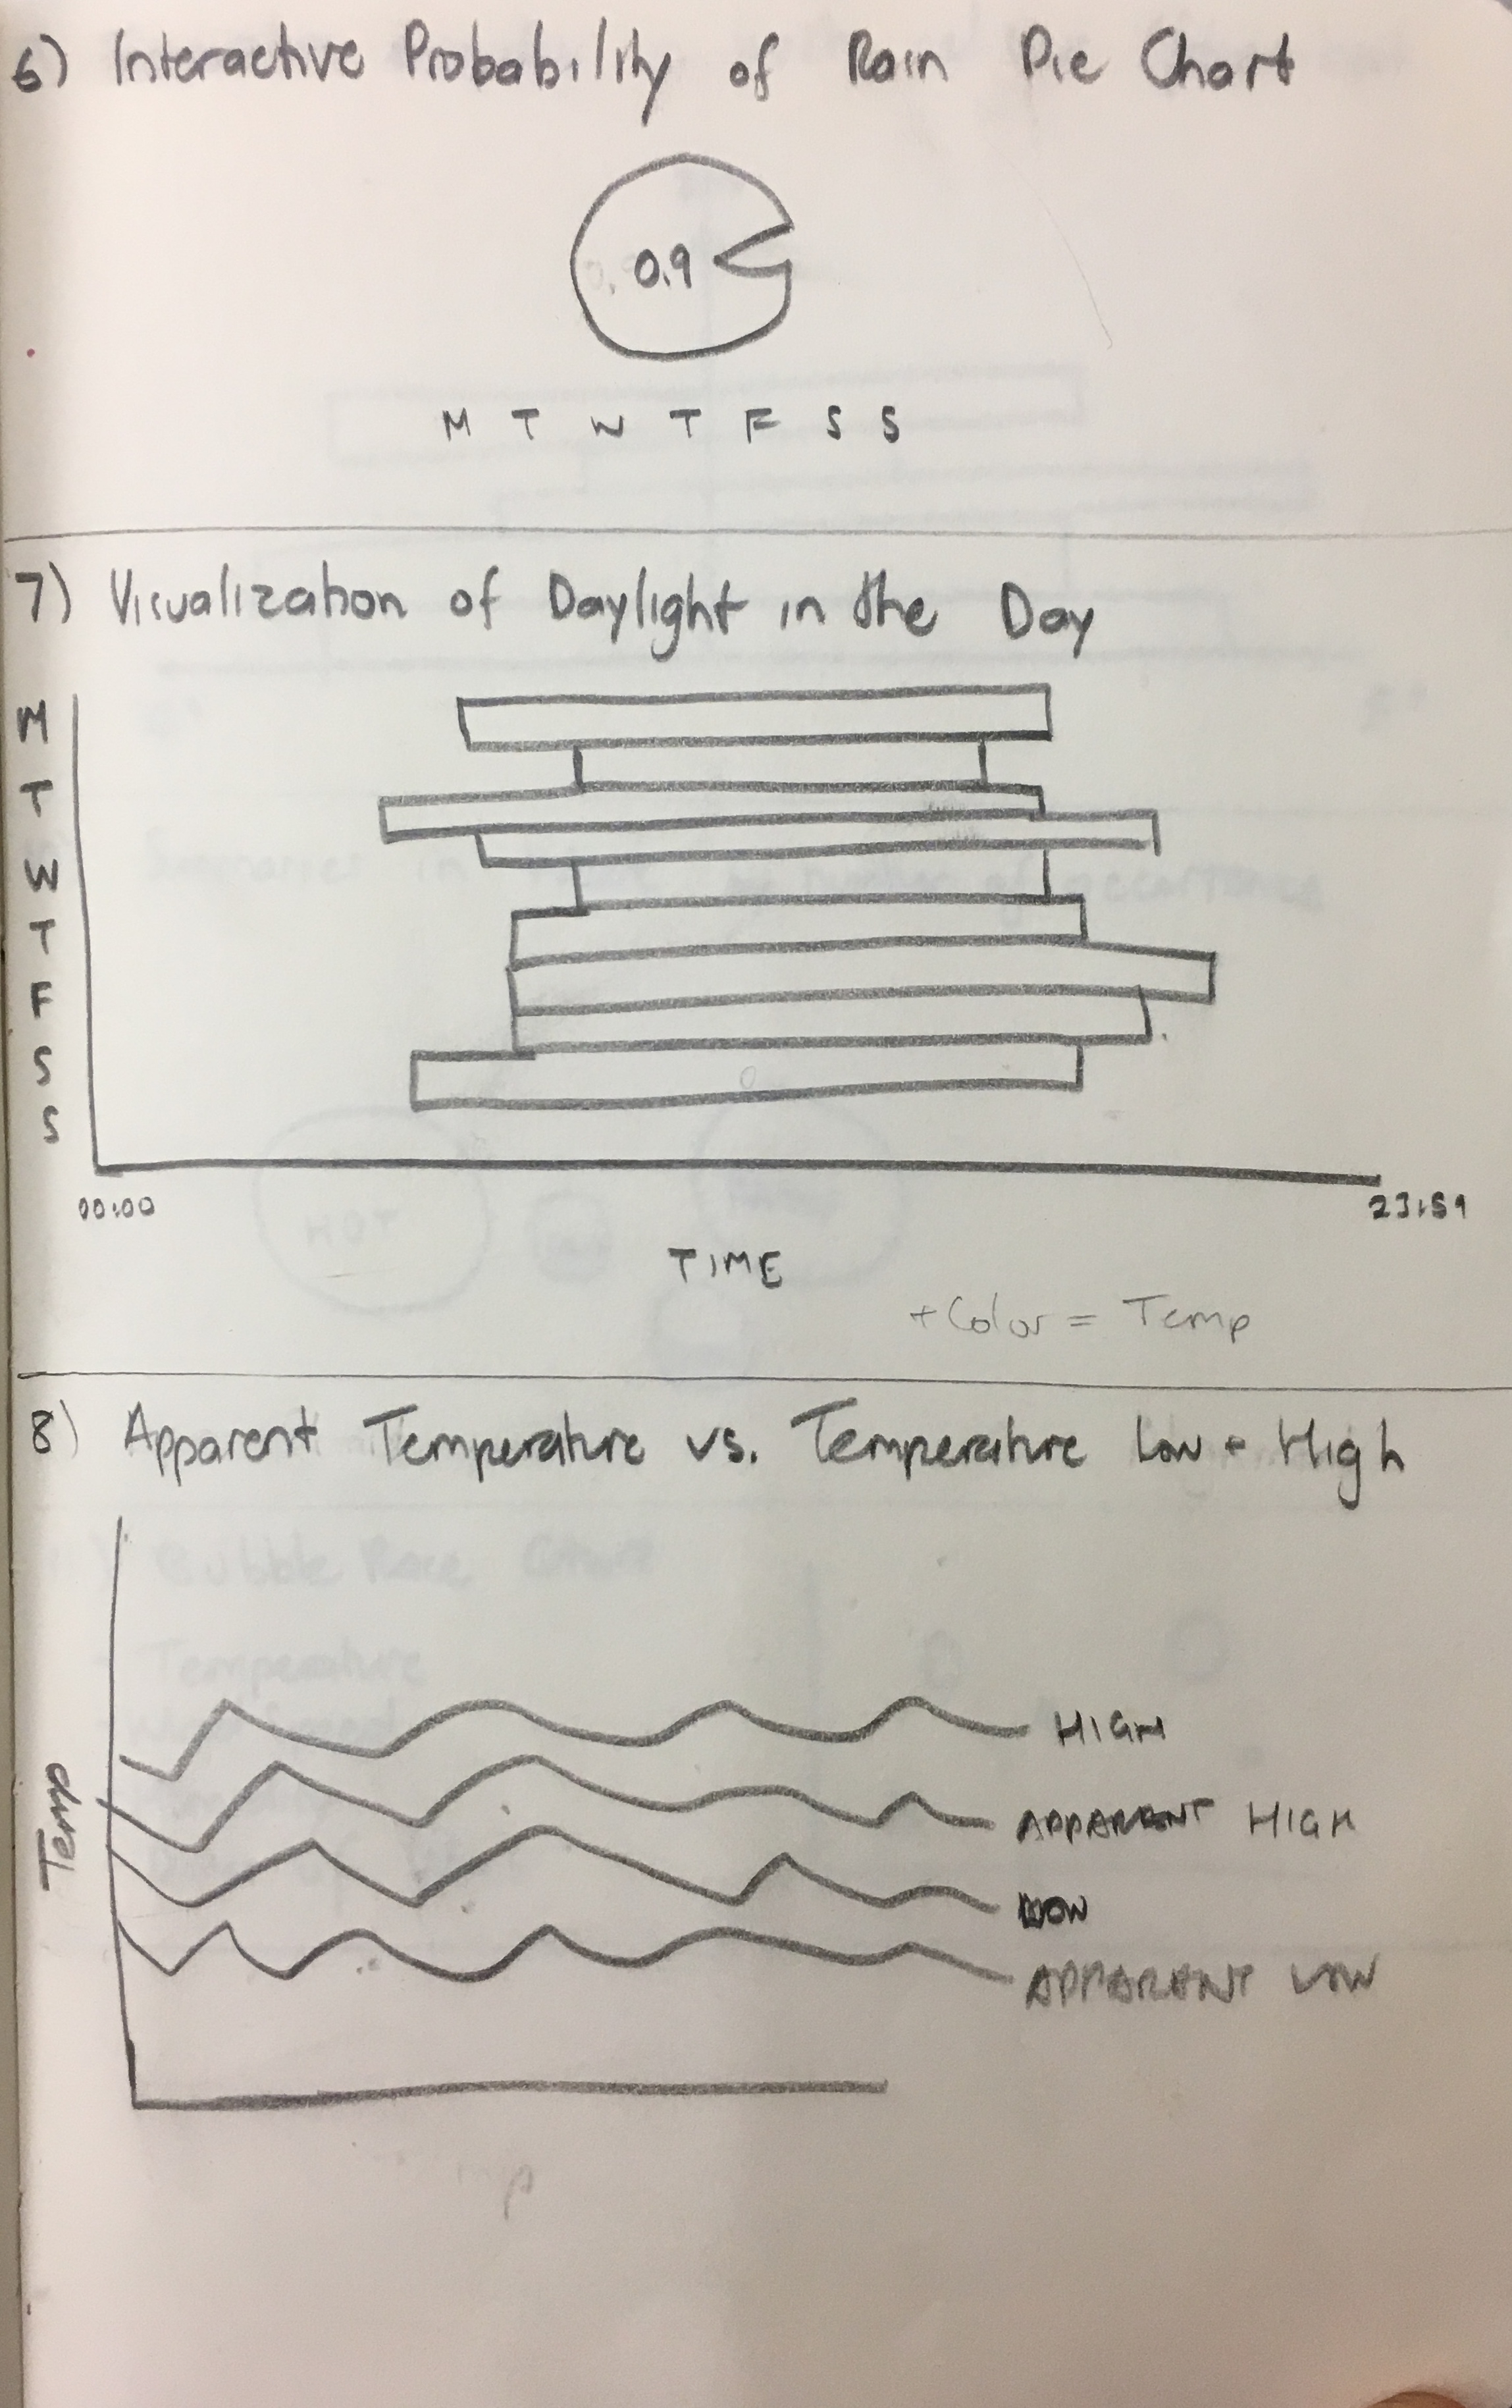 6) Interactive Probability of Rain Pie Chart
0.9
M T W T F S S
7) Visualization of Daylight in the Day
M
T
W
T
F
S
S
00:00
23:59
TIME
+ Color = Temp
8) Apparent Temperature vs. Temperature Low + High
Temp
HIGH
APPARENT HIGH
LOW
APPARENT LOW